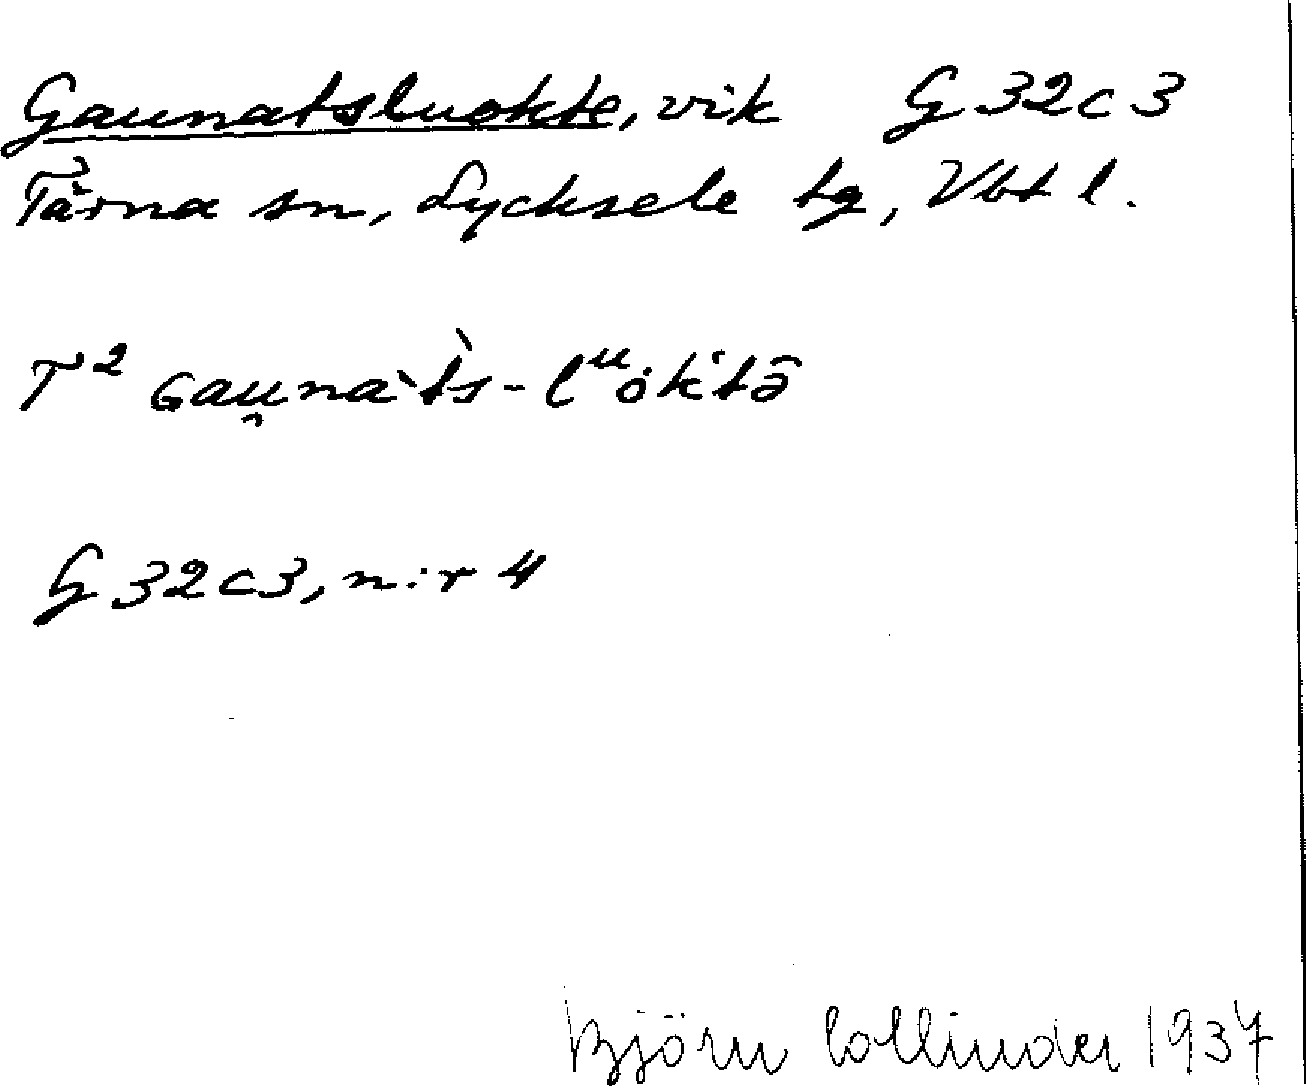 Gaunatsluokte, vik G 32 c 3
Tärna sn, Lycksele tg, Vbt l.
T² ɢau̯nàˋts-lᵘȯk‘tə̄
G 32 c 3, n:r 4
Björn Collinder 1937